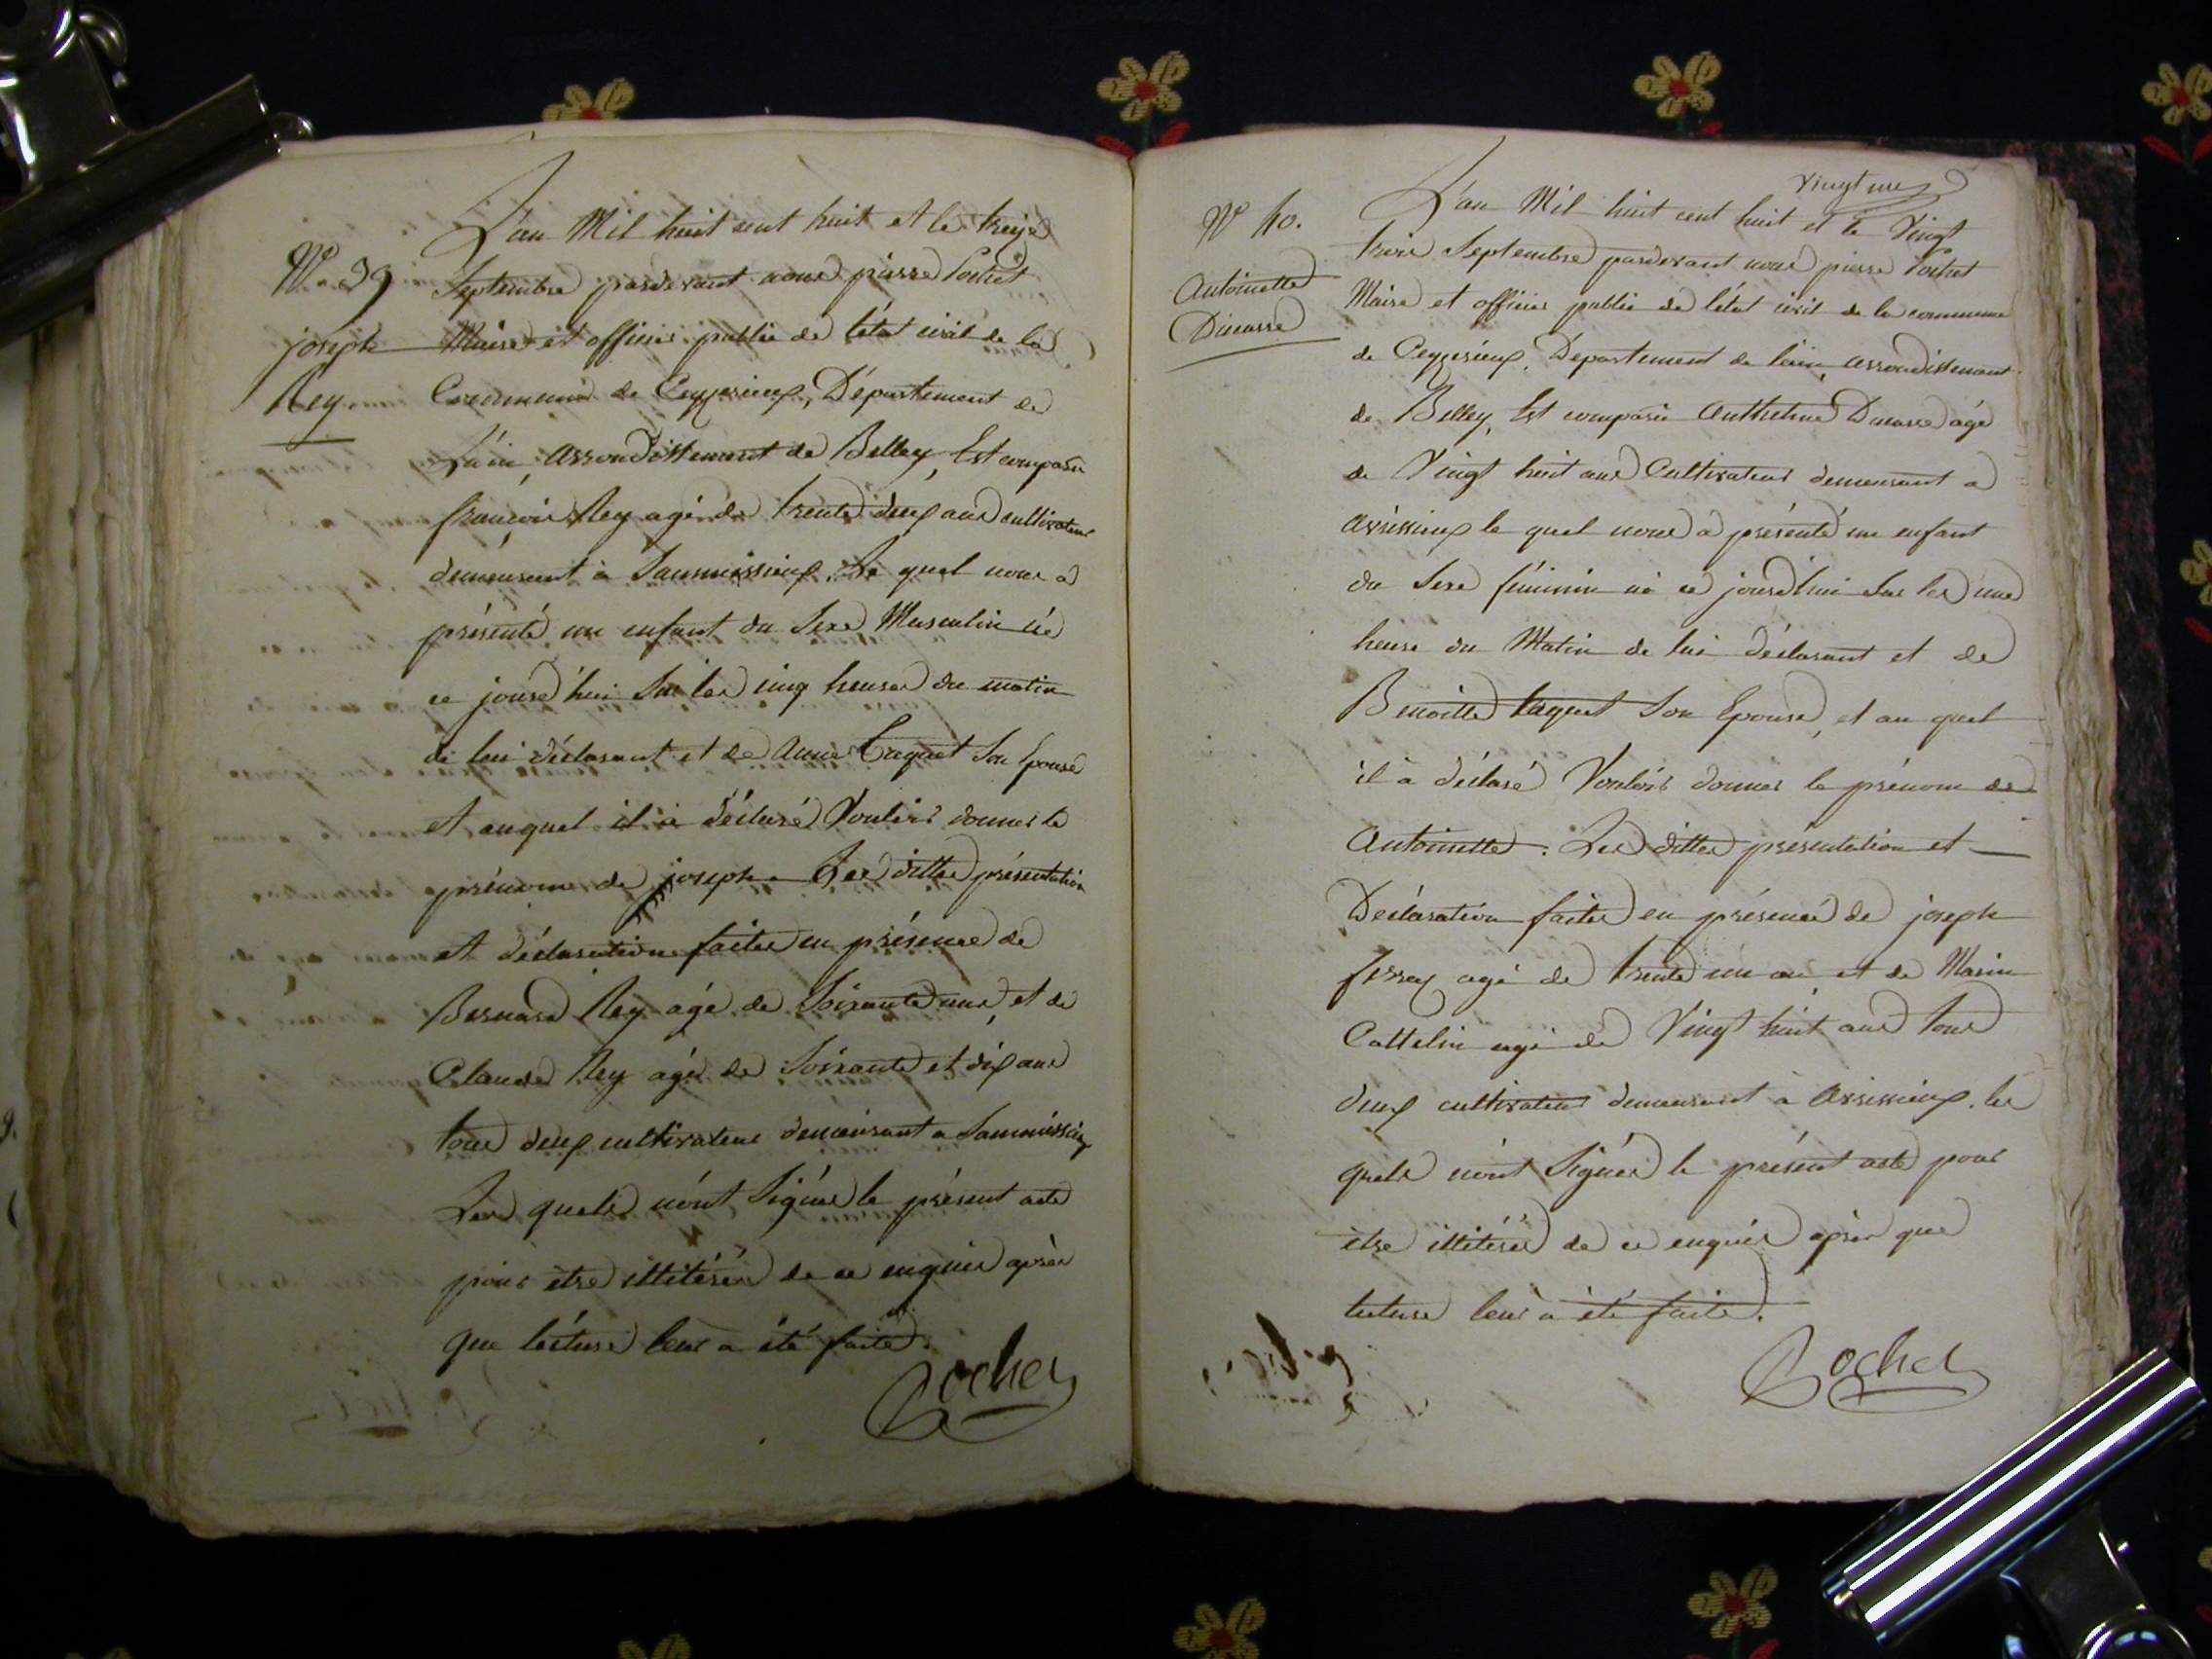 L'an Mil huit cent huit et le treize
N° 39
Septembre pardevant nous pierre Pochet
joseph
Maire et officier public de l'état civil de la
Rey
Commune de Ceyzerieux, Département de
L'ain, arrondissement de Belley, Est comparu
françois Rey agé de trente deux ans cultivateur
demeurant à Le quel nous a
présenté un enfant du Sexe Masculin né
ce jourd'hui Sur les cinq heures du matin
de lui déclarant et de Anne Taquet Son Epouse
et auquel il a déclaré Vouloir donner le
prénome de joseph. Les dittes présentation
et déclaration faites en présence de
Bernard Rey agé de Soixante ans, et de
Claude Rey agé de Soixante et dix ans
tous deux cultivateurs demeurant a
Les quels n'ont Signés le présent acte
pour être illitérés de ce enquis après
que lécture leur a été faite.
Pochet
vingt une
N° 40.
Antoinette
Ducarre
L'an Mil huit cent huit et le Vingt
trois Septembre pardevant nous pierre Pochet
Maire et officier public de l'état civil de la commune
de Ceyzerieux, Département de l'ain, arrondissement
de Belley, Est comparu Anthelme Ducarre agé
de Vingt huit ans Cultivateur demeurant a
avrissieux le quel nous a présenté un enfant
du Sexe féminin né ce jourd'hui Sur les une
heure du Matin de lui déclarant et de
Benoitte Son Epouse, et au quel
il a déclaré Vouloir donner le prénom de
Antoinette. Les dittes présentation et
Déclaration faites en présence de joseph
ferraz agé de trente un an et de Marin
Cattelin agé de Vingt huit ans tous
deux cultivateurs demeurant à avrissieux. les
quels n'ont Signés le présent acte pour
être illitérés de ce enquis après que
lecture leur a été faite.
Pochet